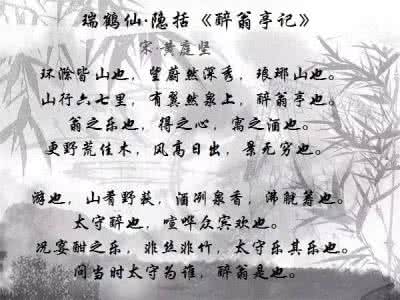 瑞鹤仙·隐括《醉翁亭记》
宋·黄庭坚
环滁皆山也，望蔚然深秀，琅琊山也。
山行六七里，有翼然泉上，醉翁亭也。
翁之乐也，得之心，寓之酒也。
更野芳佳木，风高日出，景无穷也。
游也，山肴野蔌，酒洌泉香，沸觥筹也。
太守醉也，喧哗众宾欢也。
况宴酣之乐，非丝非竹，太守乐其乐也。
问当时太守为谁，醉翁是也。